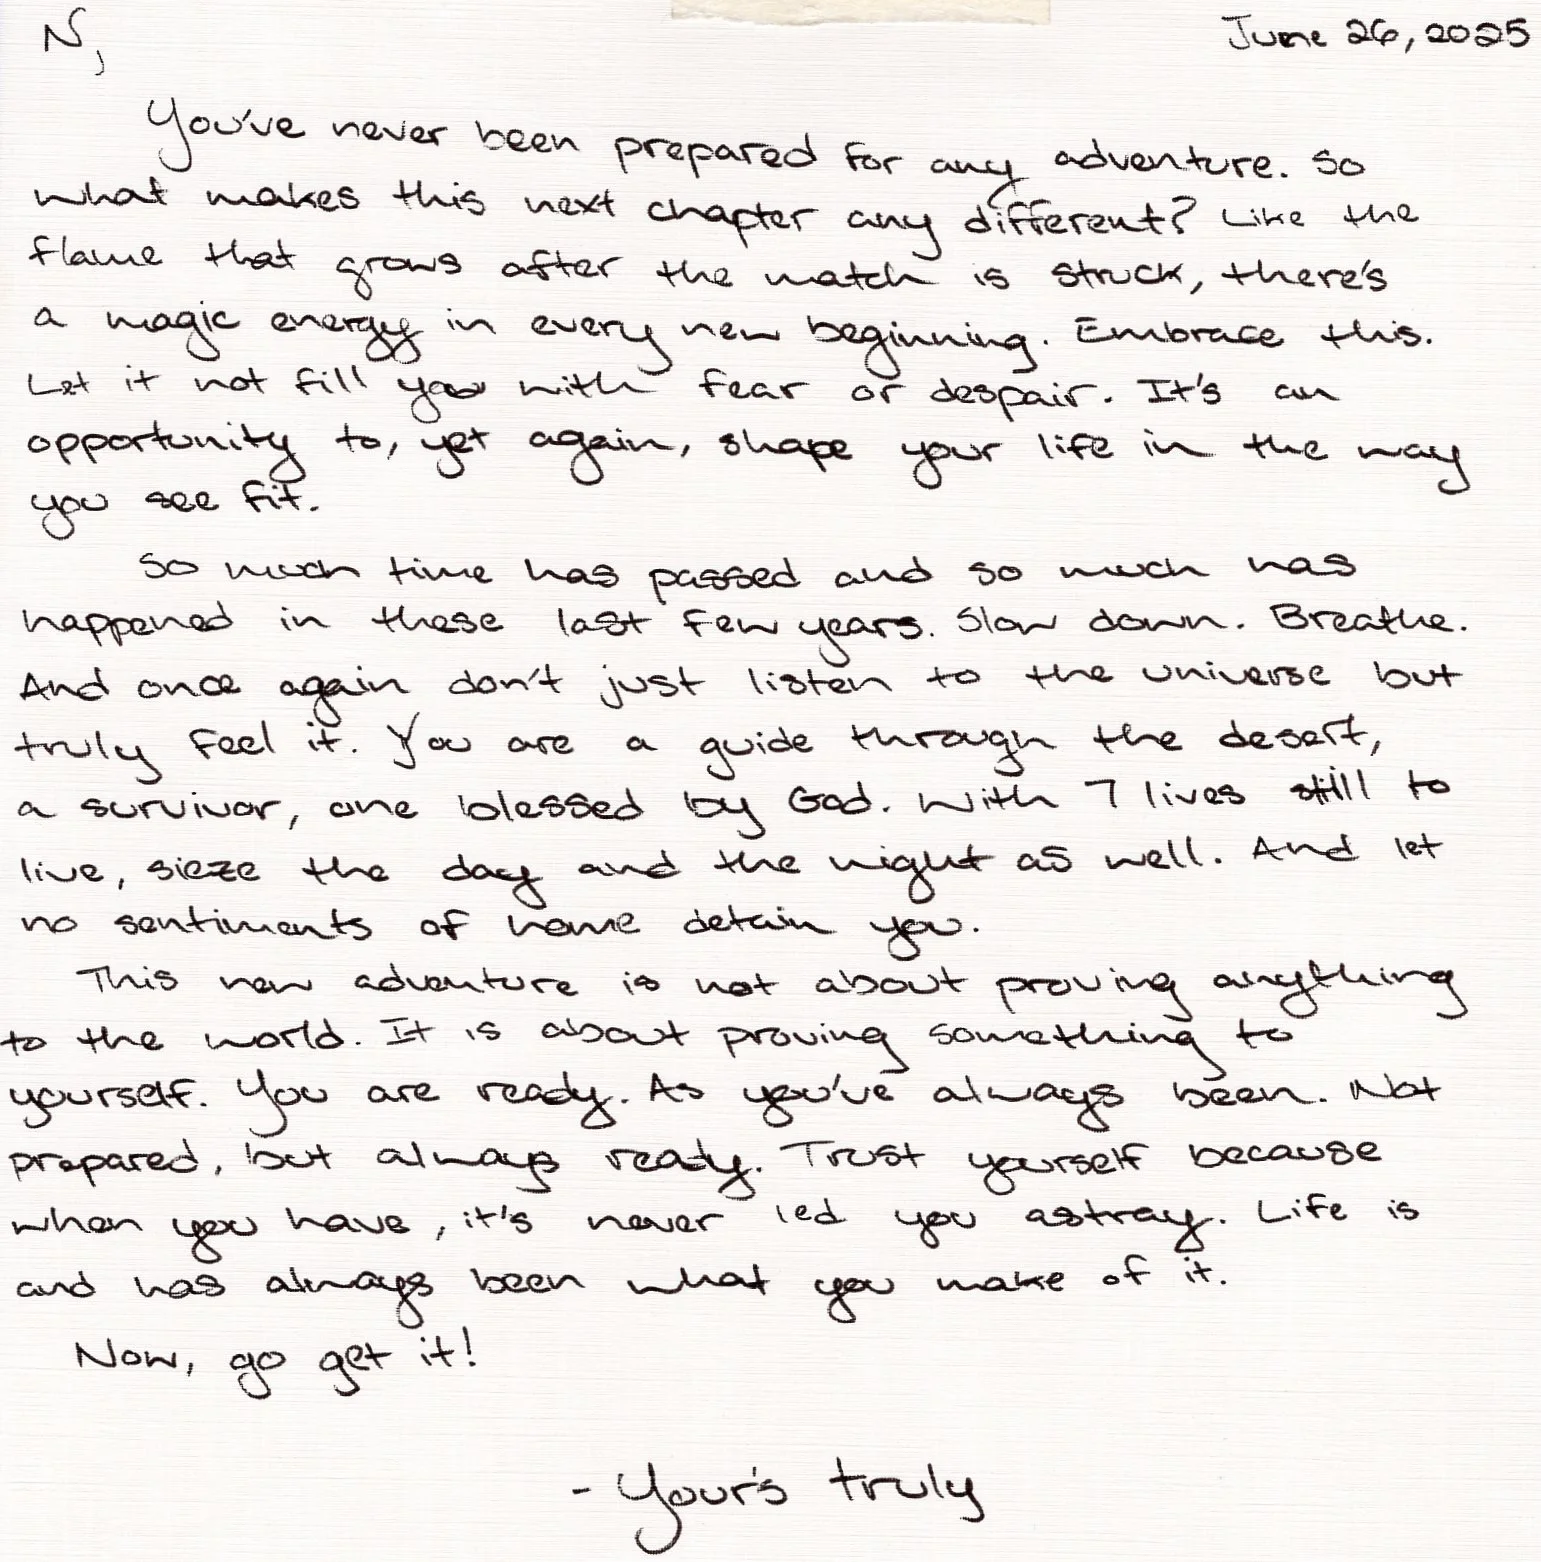 N,
June 26, 2025
You've never been prepared for any adventure. So
what makes this next chapter any different? Like the
flame that grows after the match is struck, there's
a magic energy in every new beginning. Embrace this.
Let it not fill you with fear or despair. It's an
opportunity to, yet again, shape your life in the way
you see fit.
So much time has passed and so much has
happened in these last few years. Slow down. Breathe.
And once again don't just listen to the universe but
truly feel it. You are a guide through the desert,
a survivor, one blessed by God. With 7 lives still to
live, sieze the day and the night as well. And let
no sentiments of home detain you.
This new adventure is not about proving anything
to the world. It is about proving something to
yourself. You are ready. As you've always been. Not
prepared, but always ready. Trust yourself because
when you have, it's never led you astray. Life is
and has always been what you make of it.
Now, go get it!
- Your's truly